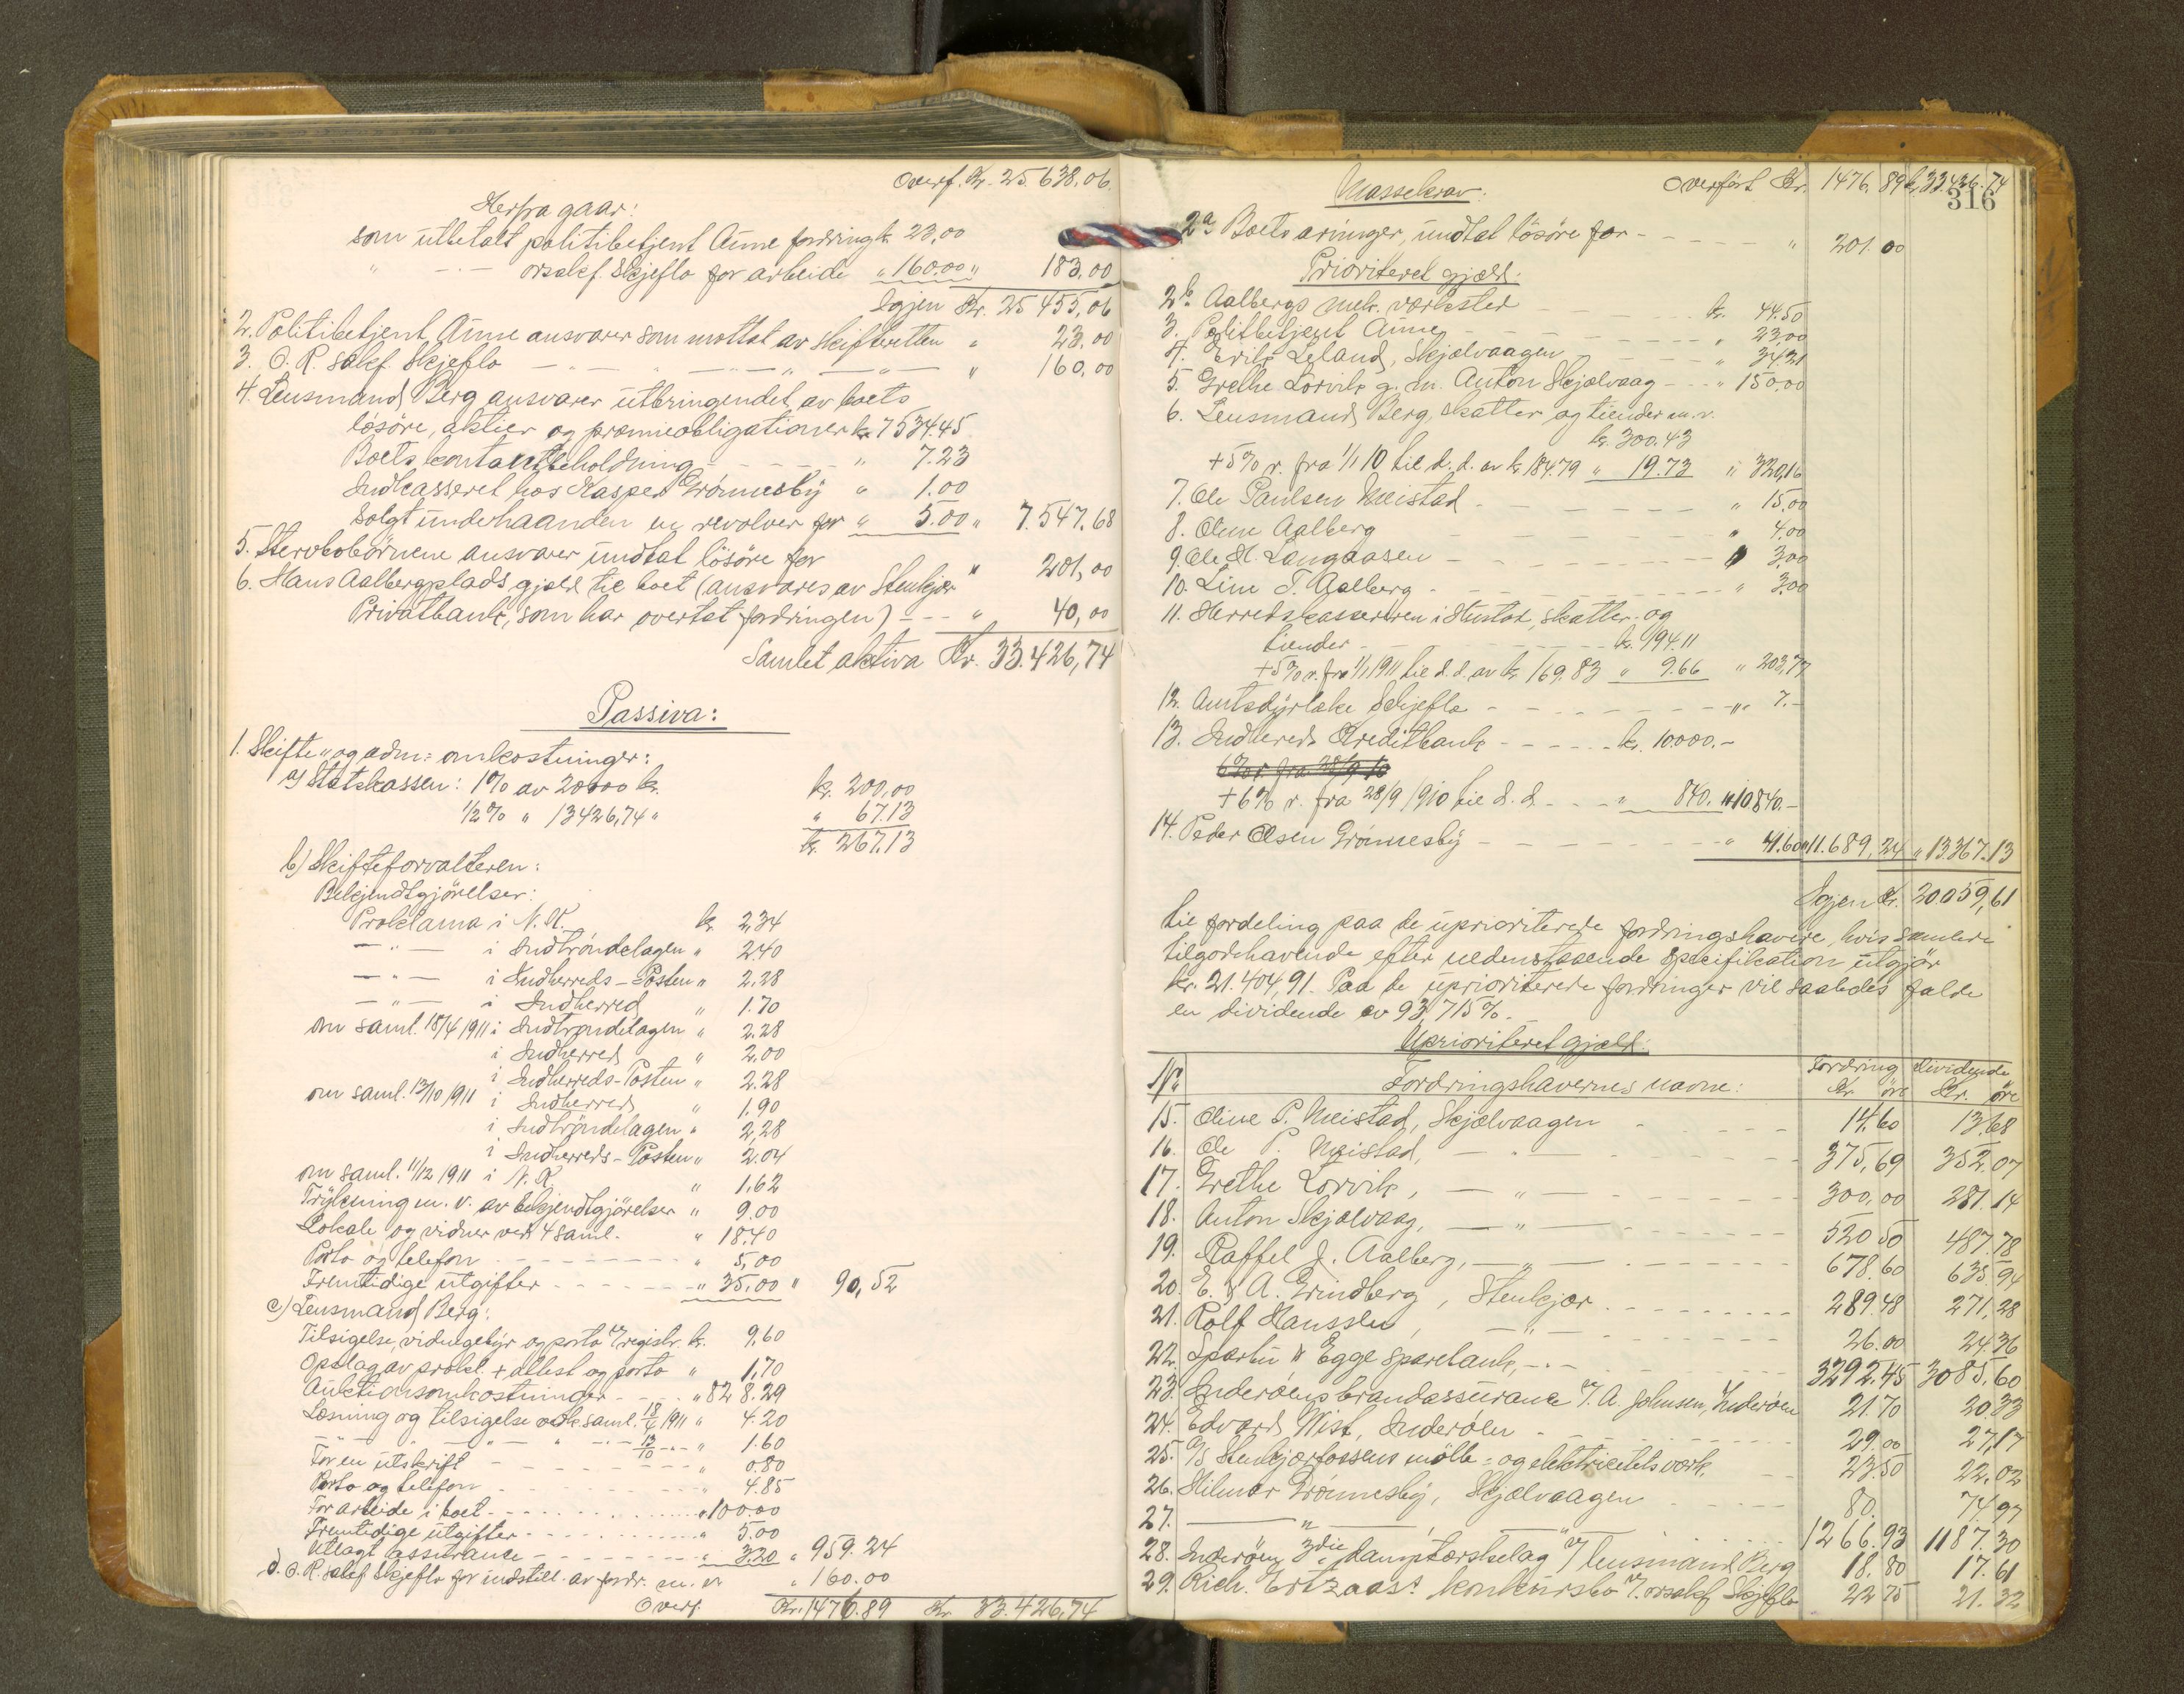 Overf. Kr. 25.638.06.
Herfra gaar:
som utbetalt politibetjent Aune fordring kr. 23,00
" -"- orsakf. Skjeflo for arbeide " 160.00 " 183,00
Igjen Kr. 25 455,06
2. Politibetjent Aune ansvarer som mottat av skifteretten " 23.00
3. O. R. sakf. Skjeflo — " — " — " — " 160,00
4. Lensmand Berg ansvarer utbringendet av boets
lösöre, aktier og præmieobligationer kr. 7534.45
Boets kontantbeholdning - - - - " 7.23
Indkasseret hos Kasper Grønnesby " 1.00
Solgt underhaanden en revolver for " 5.00 " 7.547.68
5. Stervbobörnene ansvarer undtat lösöre for " 201,00
6. Hans Aalbergplads gjæld til boet (ansvares av Stenkjær
Privatbank, som har overtat fordringen) - - - " 40,00
Samlet aktiva Kr. 33.426,74
Passiva:
1. Skifte- og adm.- omkostninger:
a) Statskassen: 1% av 20000 kr. kr. 200,00
1/2% " 13426,74 " " 67.13
kr. 267.13
b) Skifteforvalteren:
Bekjendtgjörelser:
Proklama i N. K. kr. 2,34
— " — i Indtröndelagen " 2.40
— " — i Indherreds-Posten " 2.28
— " — i Indherred " 1.70
om saml. 18/4 1911 i Indtröndelagen " 2.28
i Indherred " 2.00
i Indherreds-Posten " 2.28
om saml. 13/10 1911 i Indherred " 1,90
i Indtröndelagen " 2,28
i Indherreds-Posten " 2.04
om saml. 11/12 1911 i N. K. " 1.62
Trykning m. v. av bekjendtgjörelser " 9.00
Lokale og vidner ved 4 saml. " 18.40
Porto og telefon - - - - " 5,00
Fremtidige utgifter - - - - " 35.00 " 90,52
c) Lensmand Berg:
Tilsigelse, vidnegebyr og porto v/ registr. kr. 9,60
Opslag av prokl. + attest og porto " 1,70
Auktionsomkostninger - - - - " 828.29
Læsning og tilsigelse ved saml. 18/4 1911 " 4.20
— " — " — " — 13/10 - " - " 1.60
For en utskrift - - - - " 0.80
Porto og telefon - - - - " 4.85
For arbeide i boet - - - - " 100.00
Fremtidige utgifter - - - - " 5.00
Utlagt assurance - - - - " 3.20 " 959.24
d. O. R. sakf. Skjeflo for indstill. av fordr. m. v. " 160.00
Overf. Kr. 1476.89 Kr. 33.426,74
Massekrav. Overfört Kr. 1476.89 kr. 33.426.74
316
2a Boets arvinger, undtat lösöre for - - - - " 201.00
Prioriteret gjæld:
2b Aalbergs mek. værksted - - - - kr. 44.50
3. Politibetjent Aune - - - - " 23,00
4. Erik Leland, Skjælvaagen - - - - " 34.21
5. Grethe Lorvik g. m. Anton Skjælvaag - - - " 150,00
6. Lensmand Berg, skatter og tiender m. v.
kr. 300.43
+5% r. fra 1/1 10 til d. d. av kr. 184.79 " 19.73 " 320,16
7. Ole Paulsen Meistad - - - - " 15,00
8. Oline Aalberg - - - - " 4,00
9. Ole H. Langaasen - - - - " 3,00
10. Line T. Aalberg - - - - " 3,00
11. Herredskassereren i Hustad, skatter- og
tiender - - - - kr. 194.11
+5% r. fra 1/1 1911 til d. d. av kr. 169,83 " 9.66 " 203,77
12. Amtsdyrlæke Schjeflo - - - - " 7.-
13. Indherreds Kreditbank - - - - kr. 10000.-
6% r. fra 28/9 10
+6% r. fra 28/9 1910 til d. d. - - - " 840. " 10840.-
14. Peder Olsen Grönnesby - - - - " 41.60 " 11.689,24 " 13.367.13
Igjen Kr. 20.059,61
til fordeling paa de uprioriterede fordringshavere, hvis samlede
tilgodehavende efter nedenstaaende specifikation utgjör
kr. 21.404,91. Paa de uprioriterede fordringer vil saaledes falde
en dividende av 93,715%.
Uprioriteret gjæld:
No Fordringshavernes navne: Fordring Kr. öre Dividende Kr. öre
15. Oline P. Meistad, Skjælvaagen - - - 14,60 13.68
16. Ole P. Meistad, — " — - - - 375,69 352.07
17. Grethe Lorvik, — " — - - - 300,00 281.14
18. Anton Skjælvaag, — " — - - - 520 50 487.78
19. Raffel J. Aalberg, — " — - - - 678.60 635.94
20. E. & A. Grindberg, Stenkjær - - - 289.48 271,28
21. Rolf Hanssen, — " — - - - 26.00 24.36
22. Sparbu & Egge sparebank, - - - 3292.45 3085.60
23. Inderöens brandassurance v/ A. Johnsen, Inderöen 21.70 20.33
24. Edvard Wist, Inderöen - - - 29.00 27,17
25. A/S Stenkjærfossens mölle- og elektricitetsværk. 23.50 22.02
26. Hilmar Grönnesby, Skjælvaagen - - - 80. 74.97
27. — " — , — " — 1266.93 1187.30
28. Inderöens 3die damptærskelag v/ lensmand Berg 18.80 17.61
29. Rich. konkursbo v/ orsakf. Skjeflo 22 75 21.32